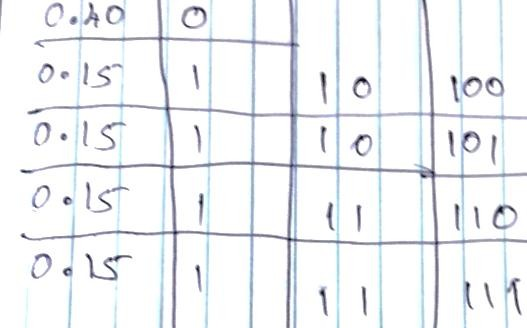 0.40 0
0.15 1 10 100
0.15 1 10 101
0.15 1 11 110
0.15 1 11 111